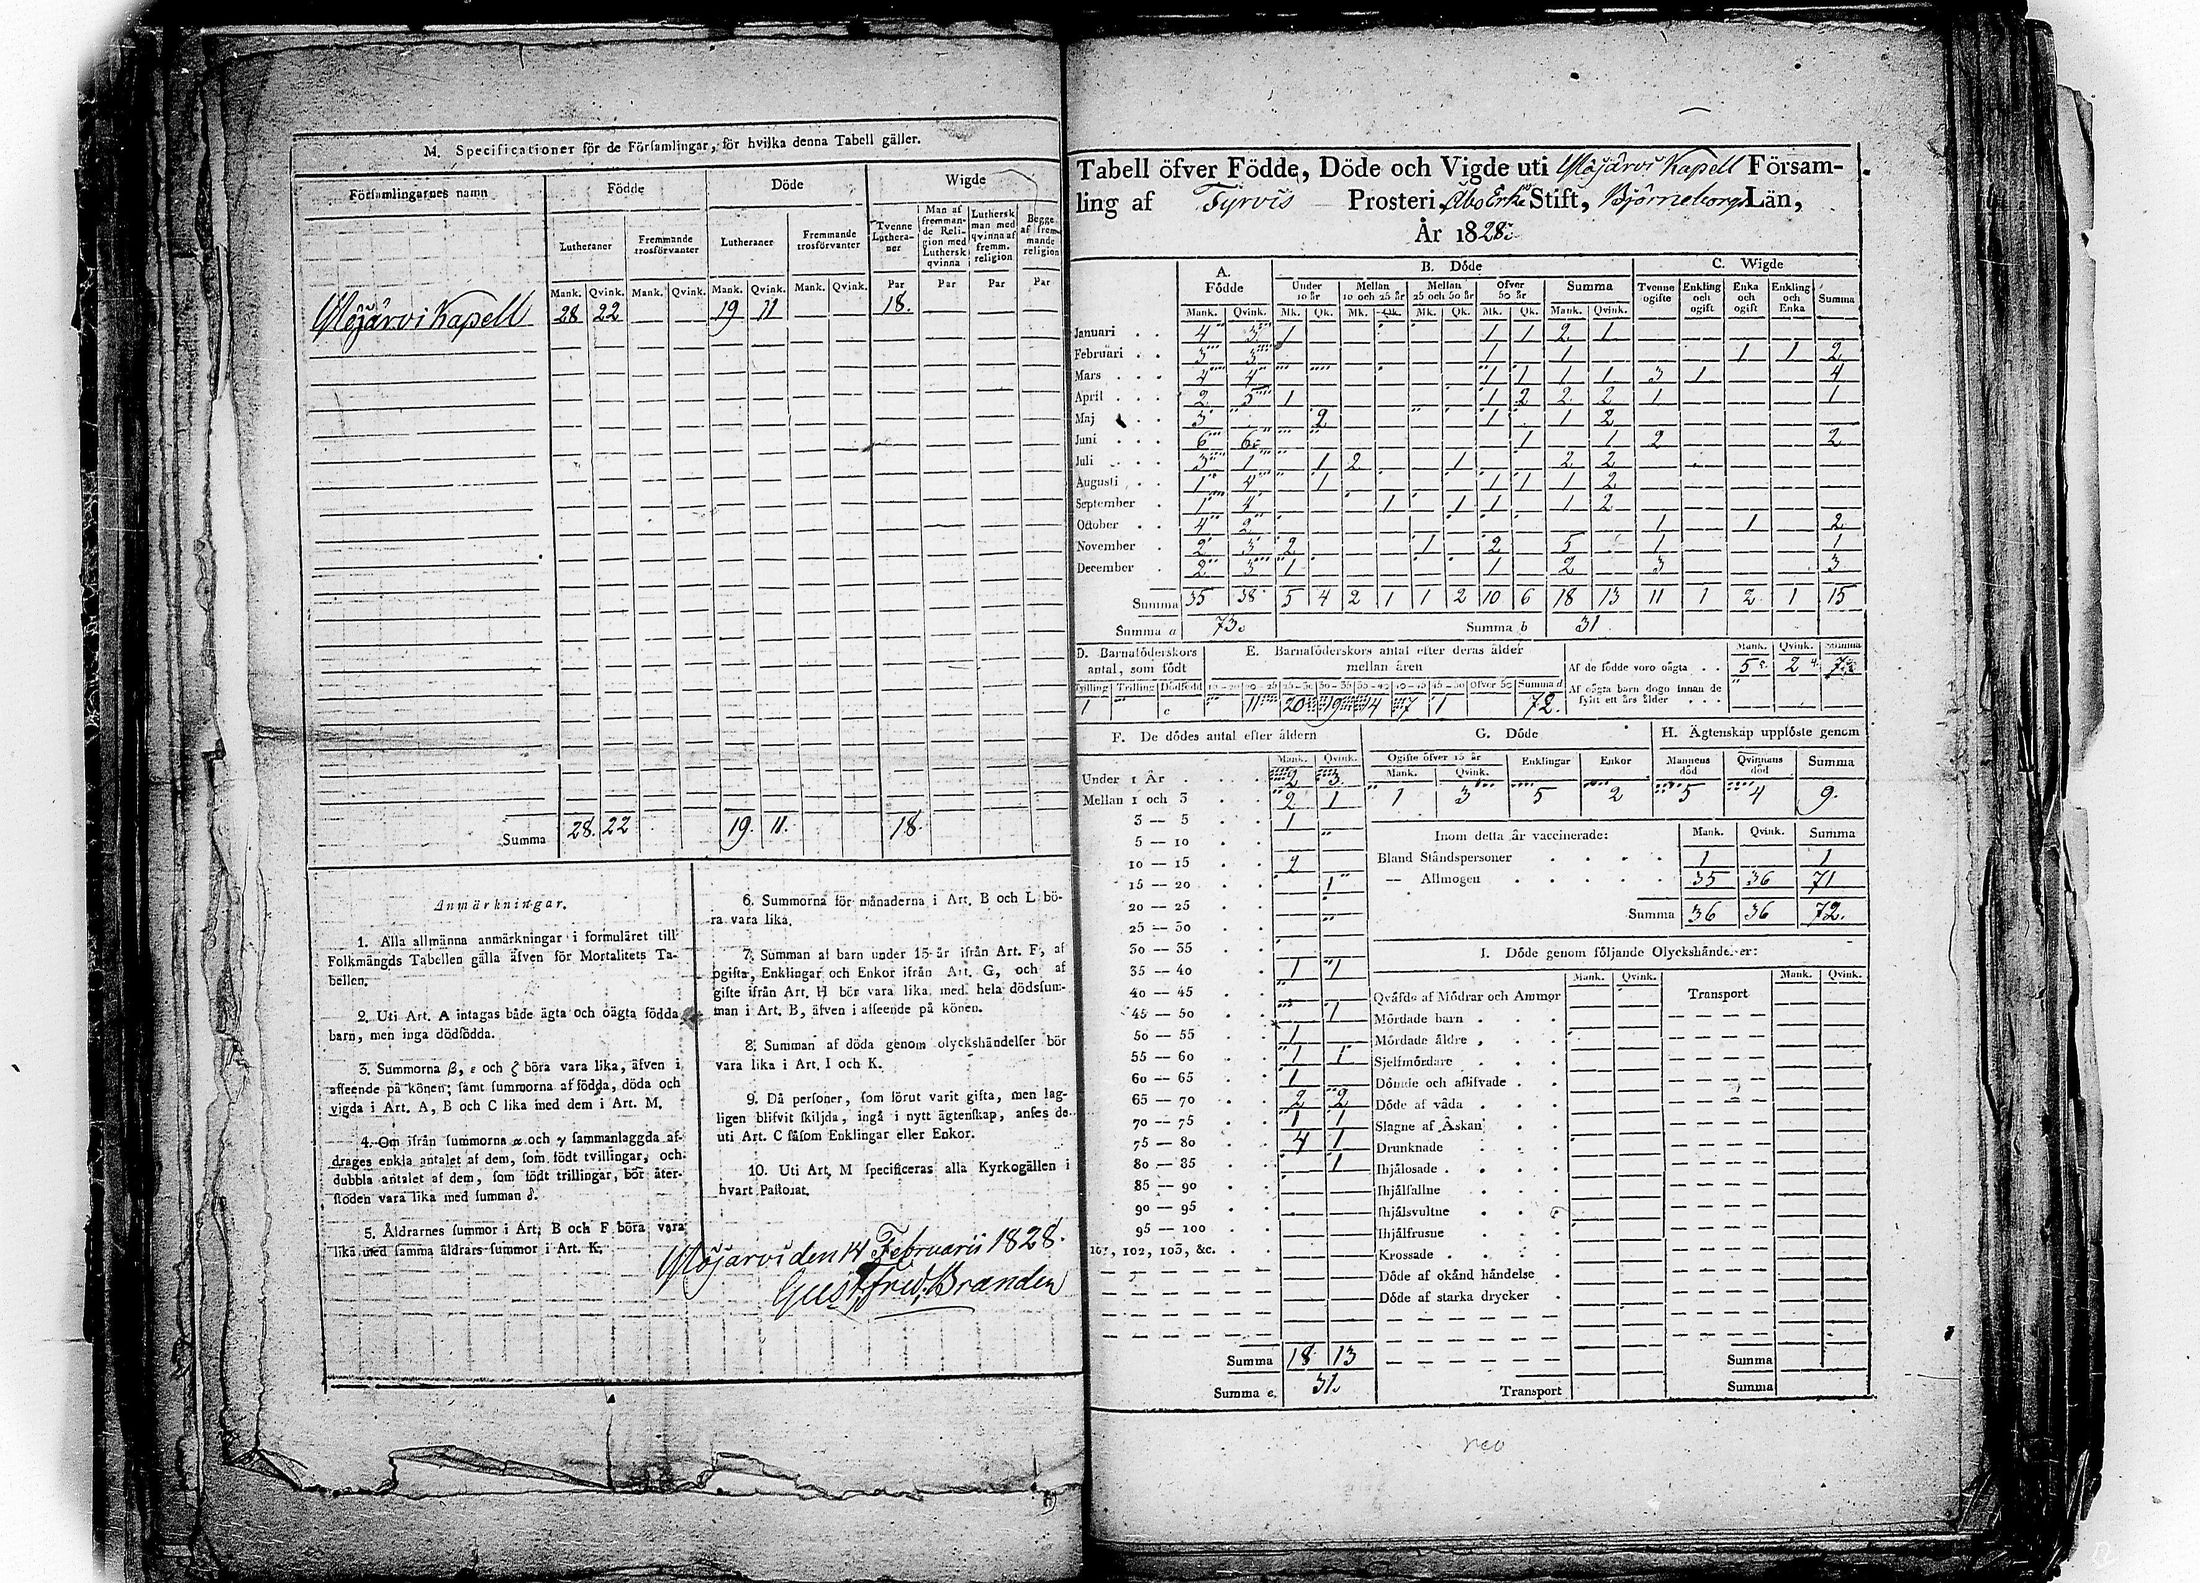 M. Specificationer för de Församlingar, för hvilka denna Tabell gäller.
Församlingarnes namn
Födde
Döde
Wigde
Lutheraner
Fremmande trosförvanter
Lutheraner
Fremmande trosförvanter
Tvenne Lutheraner
Man af fremmande Religion med Luthersk qvinna
Luthersk man med qvinna af fremm. religion
Begge af fremmande religion
Mank. Qvink. Mank. Qvink. Mank. Qvink. Mank. Qvink. Par Par Par Par
Mojärvi Kapell 28 22 19 11 18.
Summa 28. 22 19. 11. 18.
Anmärkningar.
1. Alla allmänna anmärkningar i formuläret till
Folkmängds Tabellen gälla äfven för Mortalitets Ta-
bellen.
2. Uti Art. A intagas både ägta och oägta födda
barn, men inga dödfödda.
3. Summorna β, ε och ζ böra vara lika, äfven i
afseende på könen; samt summorna af födda, döda och
vigda i Art. A, B och C lika med dem i Art. M.
4. Om ifrån summorna α och γ sammanlaggda af-
drages enkla antalet af dem, som födt tvillingar, och
dubbla antalet af dem, som födt trillingar, bör åter-
stoden vara lika med summan δ.
5. Åldrarnes summor i Art. B och F böra vara
lika med samma åldrars summor i Art. K.
6. Summorna för månaderna i Art. B och L bö-
ra vara lika.
7. Summan af barn under 15 år ifrån Art. F, af
ogifta, Enklingar och Enkor ifrån Art. G, och af
gifte ifrån Art. H bör vara lika med hela dödssum-
man i Art. B, äfven i afseende på könen.
8. Summan af döda genom olyckshändelser bör
vara lika i Art. I och K.
9. Då personer, som förut varit gifta, men lag-
ligen blifvit skiljda, ingå i nytt ägtenskap, anses de
uti Art. C såsom Enklingar eller Enkor.
10. Uti Art. M specificeras alla Kyrkogällen i
hvart Pastorat.
Mojärvi den 14 Februarii 1828.
Gust. Fred. Brander
Tabell öfver Födde, Döde och Vigde uti Mojärvi Kapell Försam-
ling af Tyrvis Prosteri, Åbo Erke Stift, Björneborgs Län,
År 1828.
A. Födde
B. Döde
C. Wigde
Under 10 år
Mellan 10 och 25 år
Mellan 25 och 50 år
Öfver 50 år
Summa
Tvenne ogifte
Enkling och ogift
Enka och ogift
Enkling och Enka
Summa
Mank. Qvink. Mk. Qk. Mk. Qk. Mk. Qk. Mk. Qk. Mank. Qvink.
Januari 4 3 1 1 1 2 1
Februari 3 3 1 1 1 1 2
Mars 4 4 1 1 1 1 3 1 4
April 2 5 1 1 2 2 2 1 1
Maj 3 2 1 1 2
Juni 6 6 1 1 2 2
Juli 3 1 1 2 1 2 2
Augusti 1 4 1 1 1 1 2
September 1 4 1 1 1 1 2
October 4 2 1 1 2
November 2 3 2 1 2 5 1 1
December 2 3 1 1 2 3 3
Summa 35 38 5 4 2 1 1 2 10 6 18 13 11 1 2 1 15
Summa a 73. Summa b 31
D. Barnaföderskors antal, som födt
E. Barnaföderskors antal efter deras ålder mellan åren
Mank. Qvink. Summa
Af de födde voro oägta 5 2 7
Af oägta barn dogo innan de
fyllt ett års ålder
Tvilling Trilling Dödfödt 15—20 20—25 25—30 30—35 35—40 40—45 45—50 Öfver 50 Summa d
1 11 20 19 14 7 1 72.
F. De dödes antal efter åldern
G. Döde
H. Ägtenskap upplöste genom
Mank. Qvink.
Ogifte öfver 15 år
Mank. Qvink.
Enklingar
Enkor
Mannens död
Qvinnans död
Summa
Under 1 År 2 3
Mellan 1 och 3 2 1
1 3 5 2 5 4 9.
3 — 5 1
5 — 10
10 — 15 2
15 — 20 1
20 — 25
25 — 30
30 — 35
35 — 40 1 1
40 — 45
45 — 50 1
50 — 55 1
55 — 60 1 1
60 — 65 1
65 — 70 2 2
70 — 75 1 1
75 — 80 4 1
80 — 85 1
85 — 90
90 — 95
95 — 100
101, 102, 103, &c.
Summa 18 13
Summa e. 31.
Inom detta år vaccinerade: Mank. Qvink. Summa
Bland Ståndspersoner 1 1
— Allmogen 35 36 71
Summa 36 36 72.
I. Döde genom följande Olyckshändelser:
Mank. Qvink. Mank. Qvink.
Qväfde af Mödrar och Ammor
Transport
Mördade barn
Mördade äldre
Sjelfmördare
Dömde och aflifvade
Döde af våda
Slagne af Åskan
Drunknade
Ihjälosade
Ihjälfallne
Ihjälsvultne
Ihjälfrusne
Krossade
Döde af okänd händelse
Döde af starka drycker
Summa
Transport
Summa